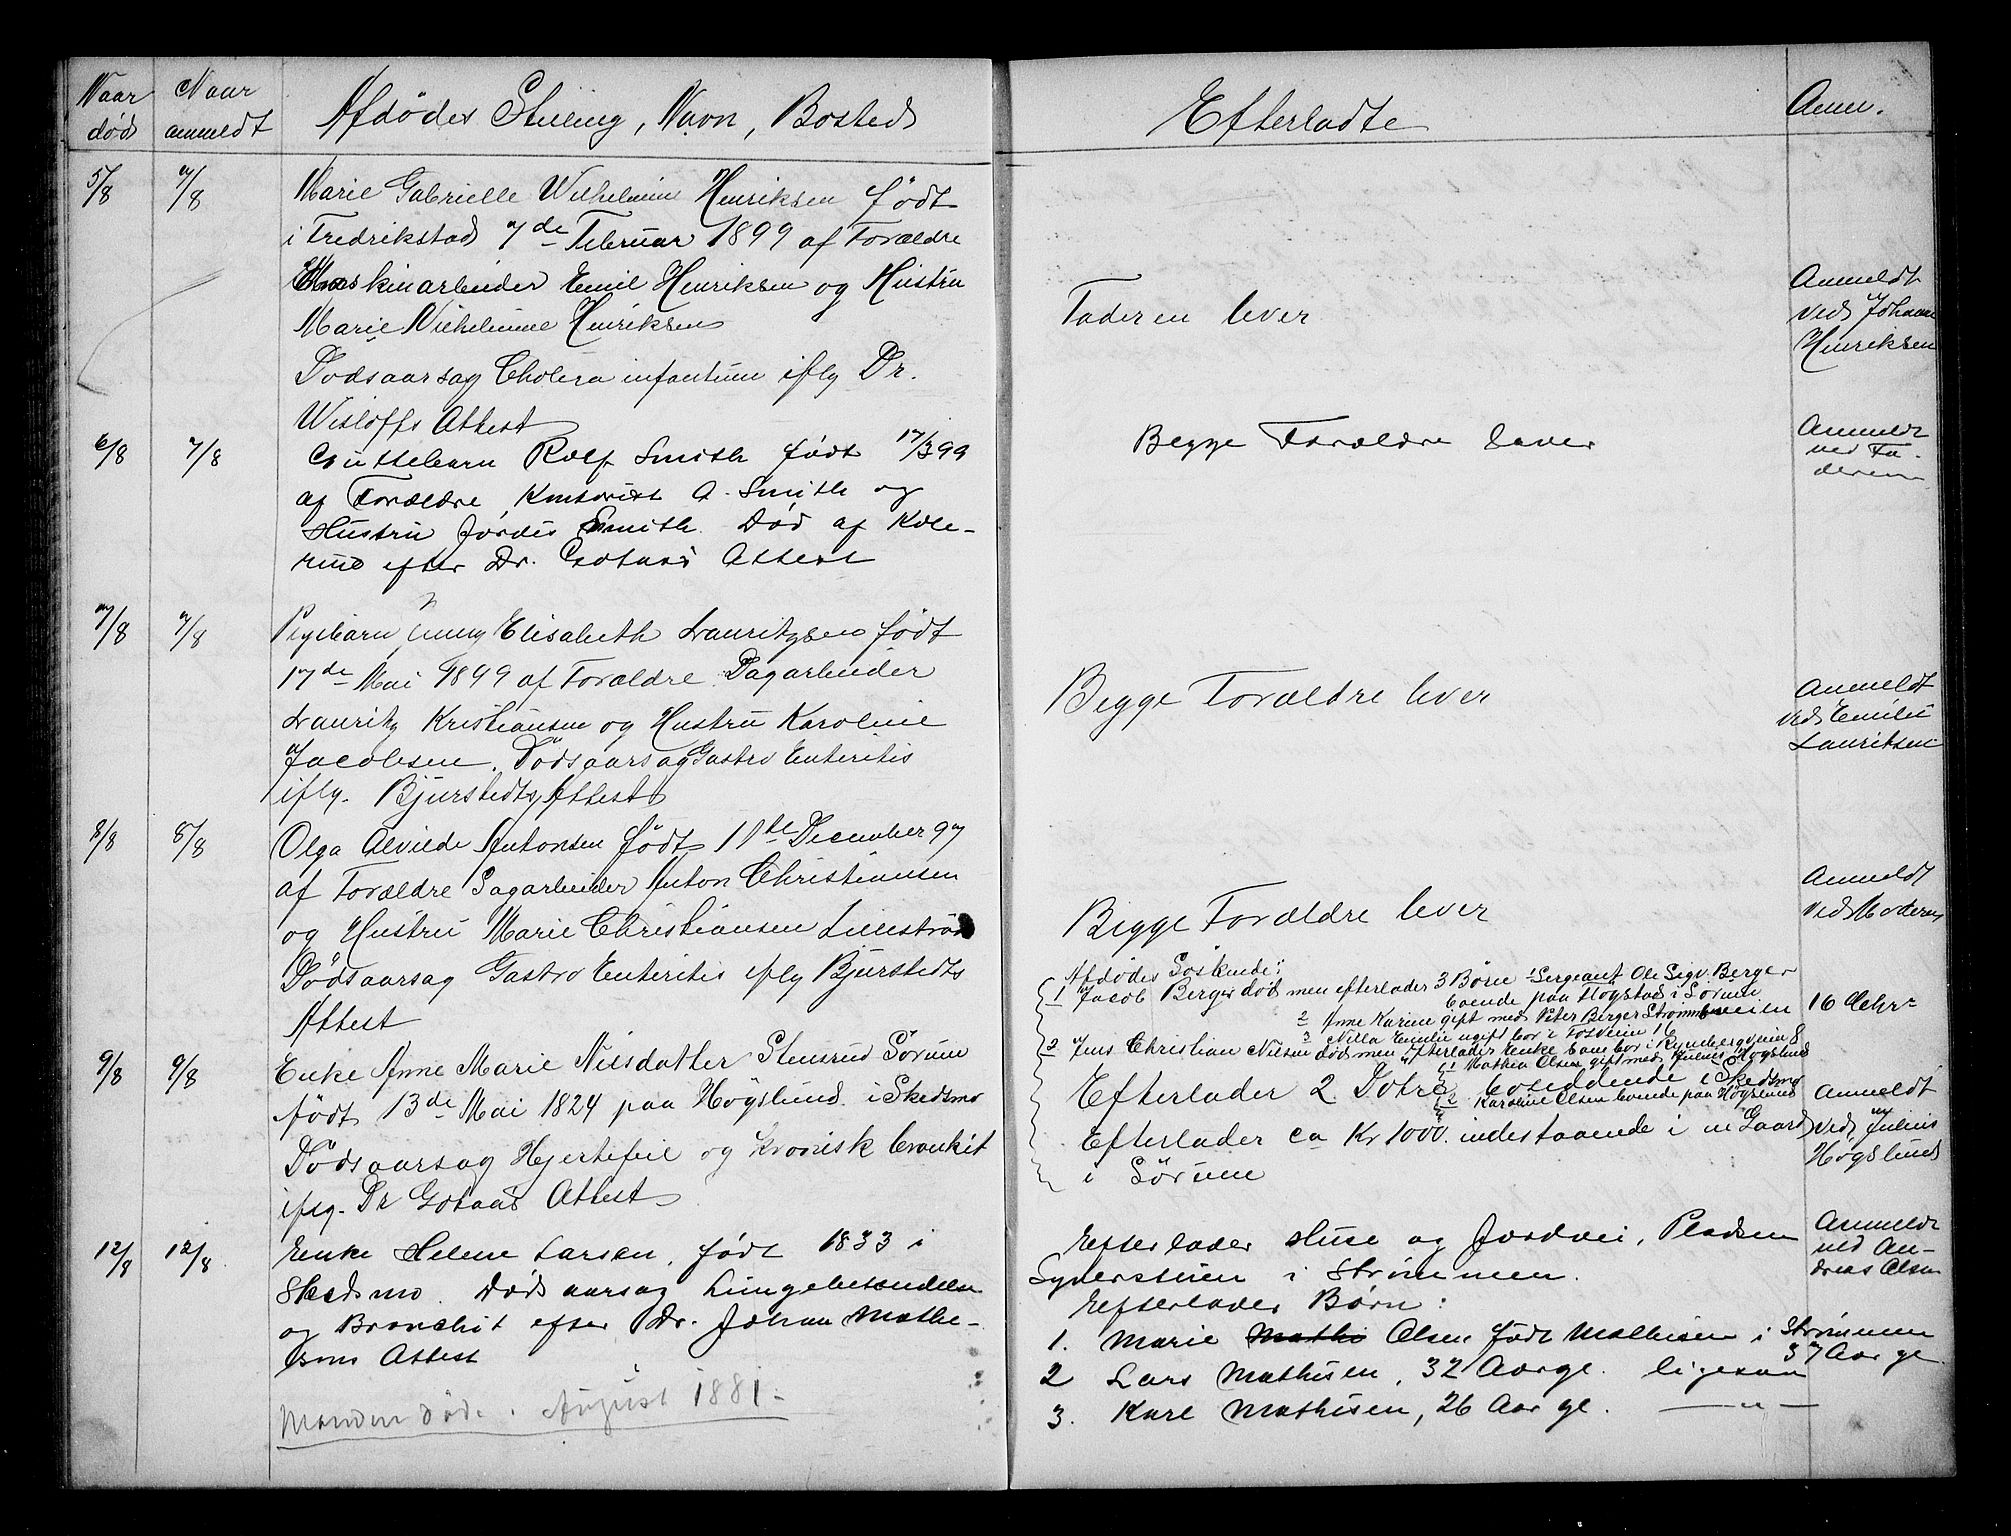 Naar død
Naar anmeldt
Afdødes Stilling, Navn, Bosted
Efterladte
Anm.
5/8
7/8
Marie Gabrielle Wilhelmine Henriksen født
i Fredrikstad 7de Februar 1899 af Forældre
Maskinarbeider Emil Henriksen og Hustru
Marie Wilhelmine Henriksen
Dødsaarsag Cholera infantum iflg Dr.
Wisløffs Attest
Faderen lever
Anmeldt
ved Johann
Henriksen
6/8
7/8
Guttebarn Rolf Smith født 17/3 99
af Forældre, A. Smith og
Hustru Jørdis Smith. Død af Kole-
rine efter Dr. Gotaas Attest
Begge Forældre lever
Anmeldt
ved Fa-
deren
7/8
7/8
Pigebarn Jenny Elisabeth Lauritzsen født
17de Mai 1899 af Forældre Dagarbeider
Lauritz Kristiansen og Hustru Karoline
Jacobsen. Dødsaarsag Gastro Enteritis
iflg. Bjurstedts Attest
Begge Forældre lever
Anmeldt
ved Emilie
Lauritsen
8/8
8/8
Olga Alvilde Antonsen født 11te December 97
af Forældre Sagarbeider Anton Christiansen
og Hustru Marie Christiansen Lillestrøm
Dødsaarsag Gastro Enteritis iflg Bjurstedts
Attest
Begge Forældre lever
Anmeldt
ved Moderen
9/8
9/8
Enke Anne Marie Nilsdatter Stensrud Sørum
født 13de Mai 1824 paa Høgslund i Skedsmo
Dødsaarsag Hjertefeil og Kronisk bronkit
iflg. Dr Gotaas Attest
Afdødes Søskende:
1 Jacob Berger død men efterlader 3 Børn 1 Sergeant Ole Sigv. Berger
boende paa Høgstad i Sørum
2 Anne Karine gift med Peter Berger Strømsveien
3 Nilla Emilie ugift bor i Fosveien 16
2 Jens Christian Nilsen død men efterlader Enke bor i Rynbergveien 8
1 Mathea Olsen gift med Julius Høgslund
Efterlader 2 Døtre bosiddende i Skedsmo
2 Karoline Olsen boende paa Høgslund
Efterlader ca Kr 1000. indestaaende i en Gaard
i Sørum
16
Anmeldt
ved Julius
Høgslund
12/8
12/8
Enke Helene Larsen, født 1833 i
Skedsmo. Dødsaarsag Lungebetændelse
og Bronchit efter Dr. Johan Mathe-
sons Attest
Manden døde August 1881-
Efterlader Huse og Jordvei, Pladsen
i Strømmen.
Efterlader Børn:
1. Marie Mathi Olsen født Mathisen i Strømmen
37 Aar gl.
2 Lars Mathisen, 32 Aar gl. ligesaa
3. Karl Mathisen, 26 Aar gl. — " —
Anmeldt
ved An-
dreas Olsen